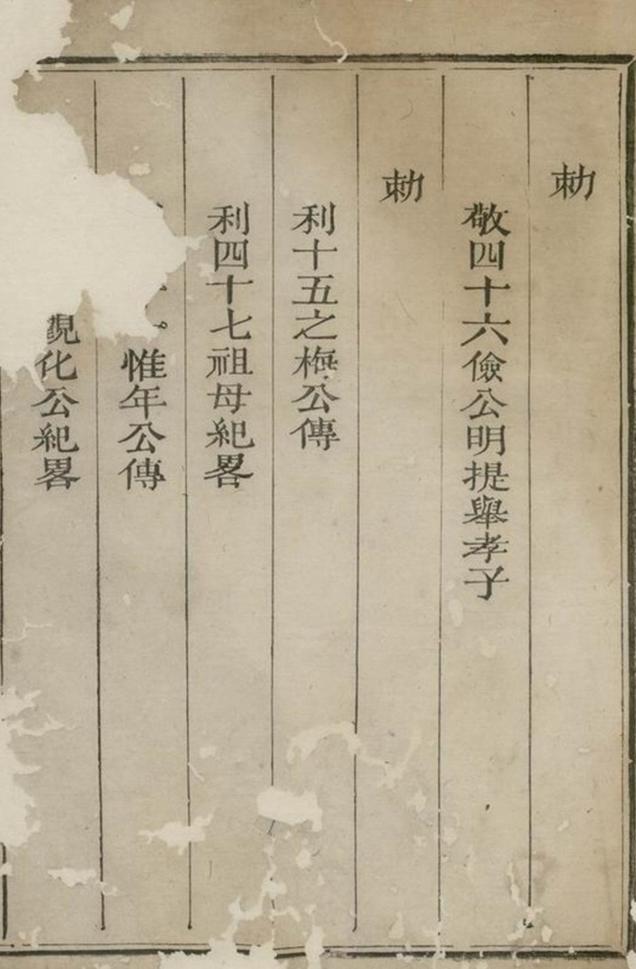 勅
敬四十六儉公明提舉孝子
勅
利十五之梅公傳
利四十七祖母紀畧
惟年公傳
觀化公紀畧